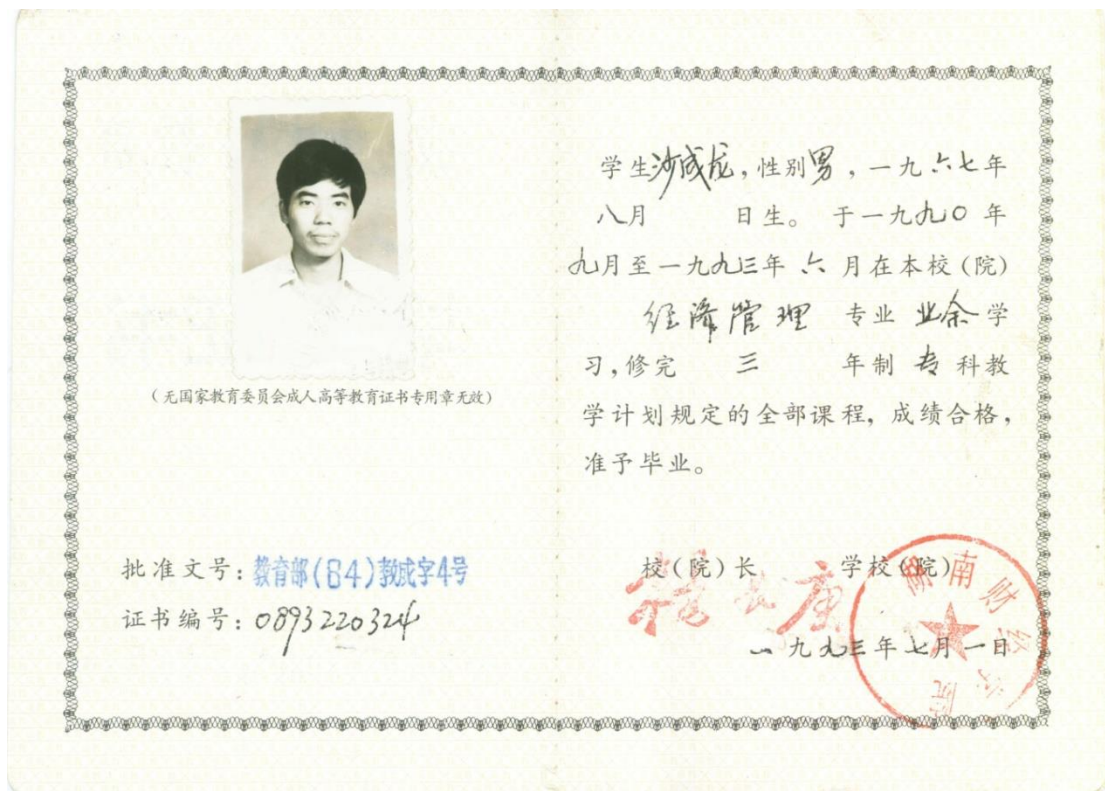 (无国家教育委员会成人高等教育证书专用章无效)
批准文号：教育部(84)教成字4号
证书编号：0893220324
学生沙成龙，性别男，一九六七年
八月 日生。于一九九〇年
九月至一九九三年六月在本校(院)
经济管理 专业 业余学
习，修完 三 年制 专 科教
学计划规定的全部课程，成绩合格，
准予毕业。
校(院)长 学校(院)
一九九三年七月一日
湖南财经学院